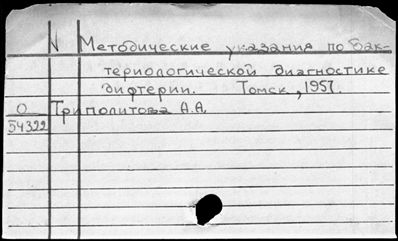 N Методические указания по бак-
териологической диагностике
дифтерии. Томск, 1957.
О Триполитова А.А.
54322